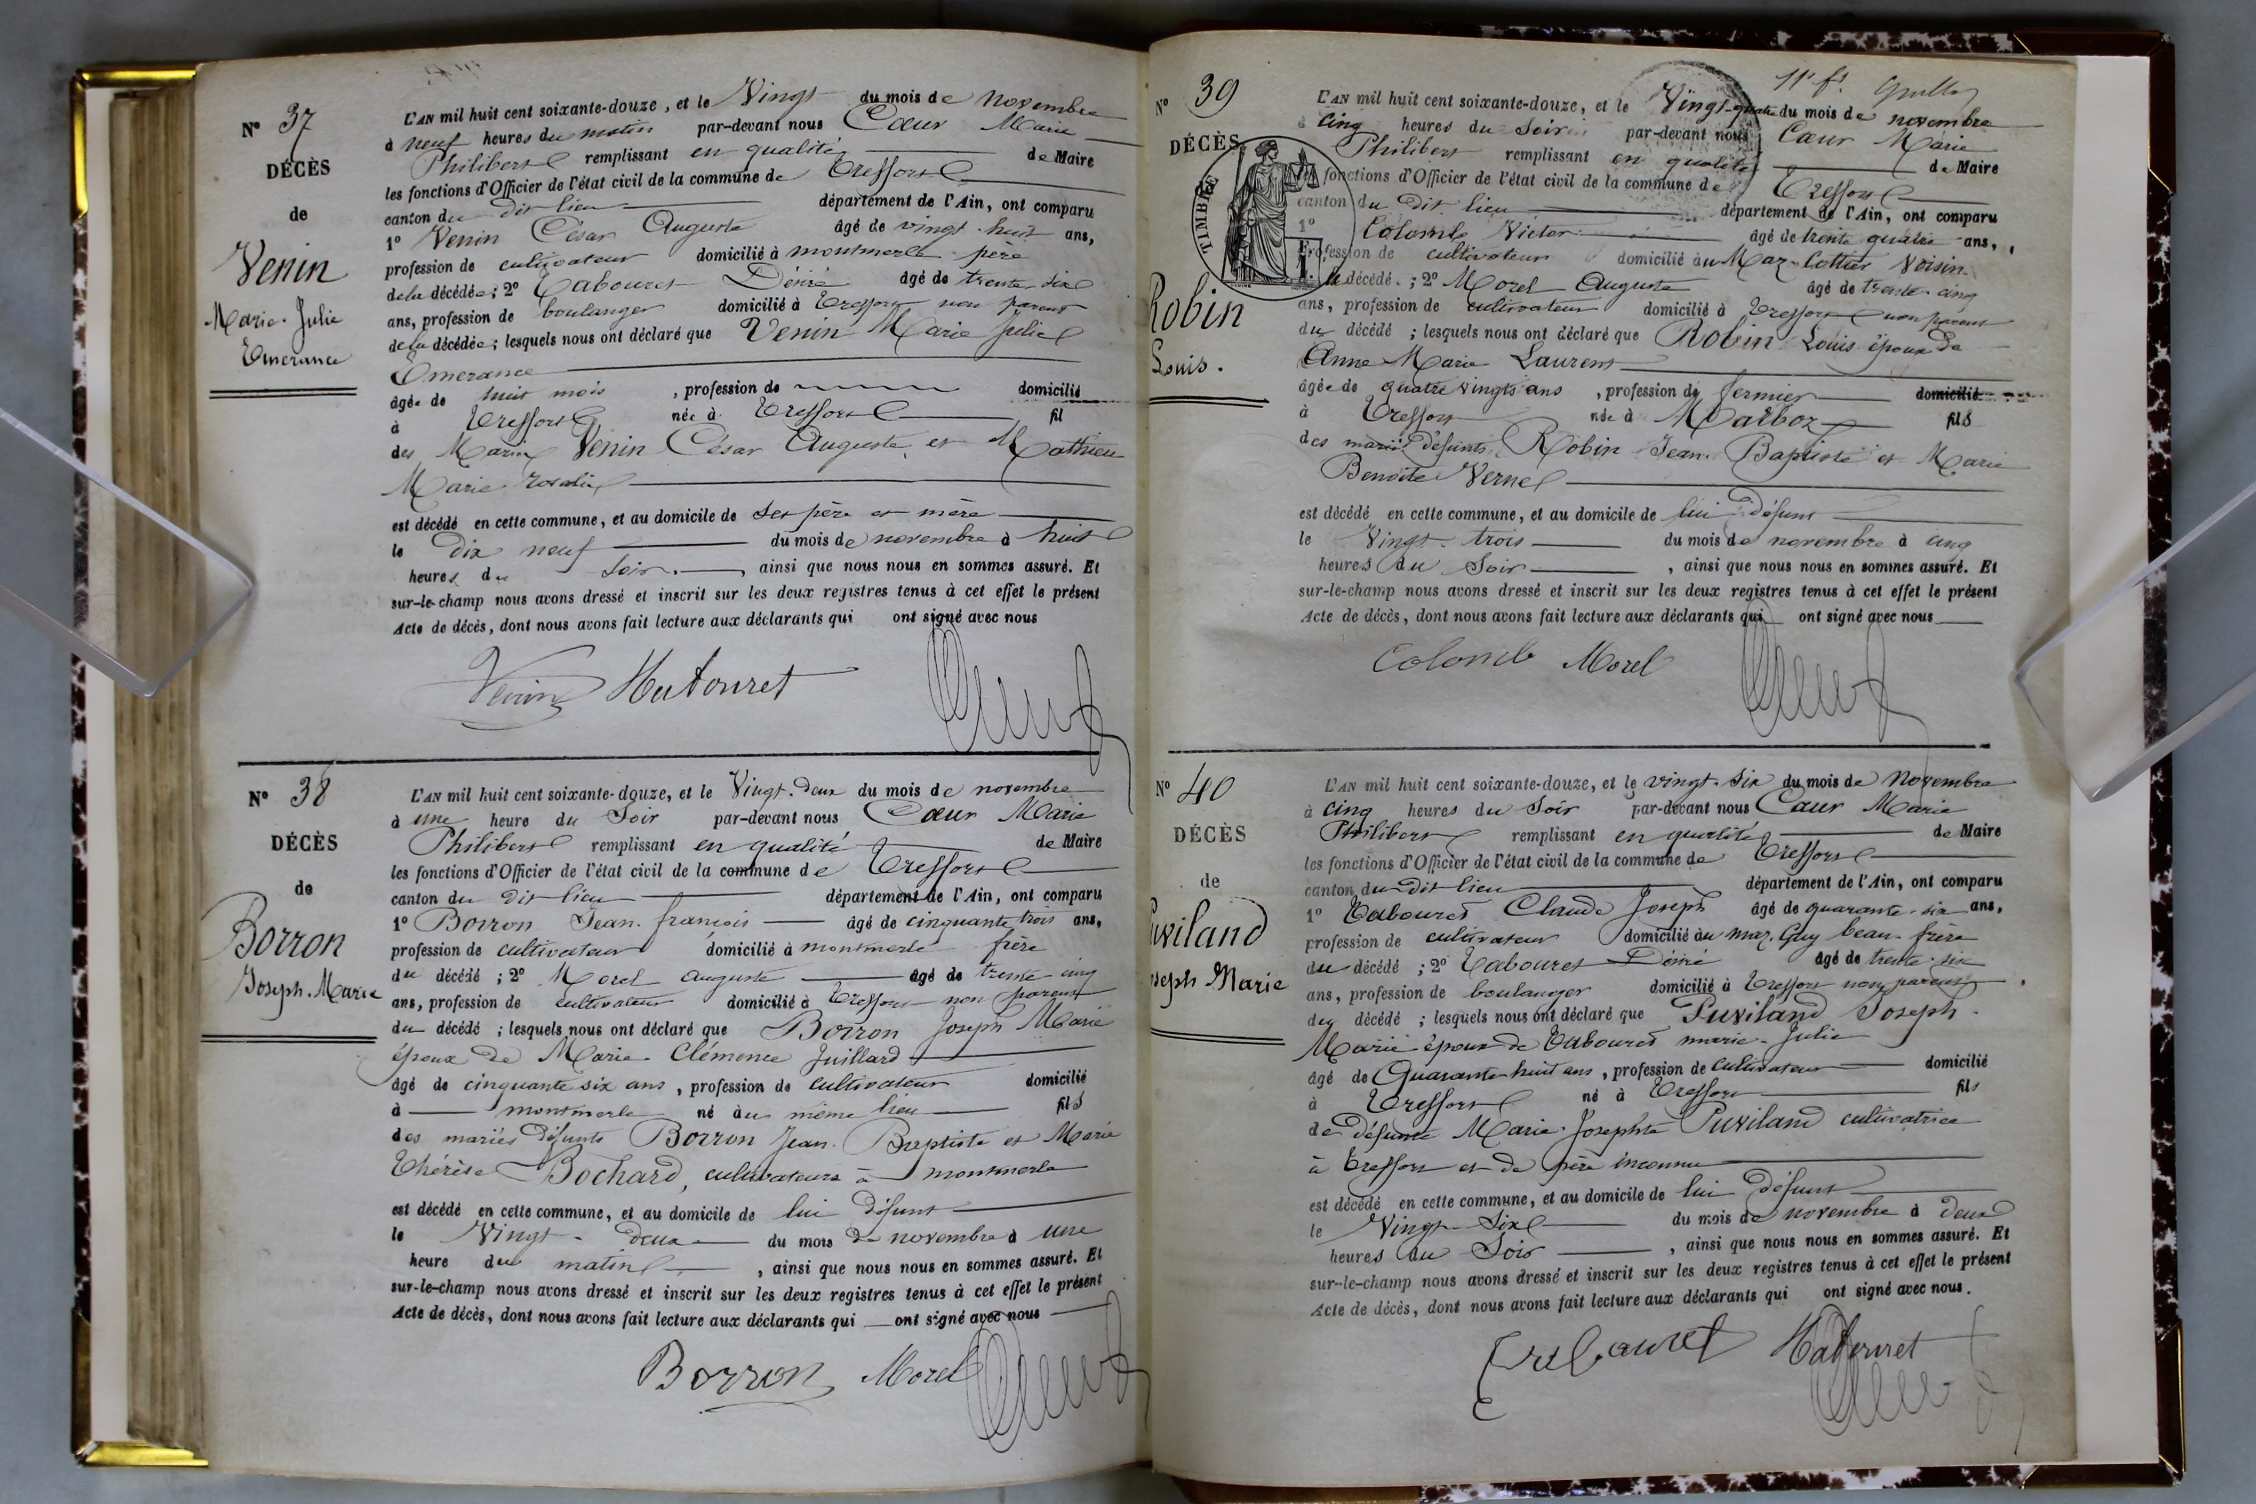 N° 37
DÉCÈS
de
Venin
Marie-Julie
Emerance
L'AN mil huit cent soixante-douze, et le Vingt du mois de novembre
à neuf heures du matin par-devant nous Cœur Marie
Philibert remplissant en qualité de Maire
les fonctions d'Officier de l'état civil de la commune de Treffort
canton du dit lieu département de l'Ain, ont comparu
1° Venin César Auguste âgé de vingt-huit ans,
profession de cultivateur domicilié à montmerle père
de la décédée; 2° Tabouret Désiré âgé de trente-six
ans, profession de boulanger domicilié à Treffort non parent
de la décédée; lesquels nous ont déclaré que Venin Marie Julie
Emerance
âgée de huit mois, profession de domicilié
à Treffort née à Treffort fil
des Mariés Venin César Auguste et Mathieu
Marie rosalie
est décédé en cette commune, et au domicile de ses père et mère
le dix neuf du mois de novembre à huit
heures du soir, ainsi que nous nous en sommes assuré. Et
sur-le-champ nous avons dressé et inscrit sur les deux registres tenus à cet effet le présent
Acte de décès, dont nous avons fait lecture aux déclarants qui ont signé avec nous
Venin
N° 38
DÉCÈS
de
Borron
Joseph-Marie
L'AN mil huit cent soixante-douze, et le Vingt-deux du mois de novembre
à une heure du Soir par-devant nous Cœur Marie
Philibert remplissant en qualité de Maire
les fonctions d'Officier de l'état civil de la commune de Treffort
canton du dit lieu département de l'Ain, ont comparu
1° Borron Jean-francois âgé de cinquante trois ans,
profession de cultivateur domicilié à montmerle frère
du décédé; 2° Morel auguste âgé de trente-cinq
ans, profession de cultivateur domicilié à Treffort non parent
du décédé; lesquels nous ont déclaré que Borron Joseph Marie
époux de Marie-Clémence Juillard
âgé de cinquante six ans, profession de cultivateur domicilié
à montmerle né au même lieu fils
des mariés défunts Borron Jean-Baptiste et Marie
Thérèse Bochard, cultivateurs à montmerle
est décédé en cette commune, et au domicile de lui défunt
le Vingt-deux du mois de novembre à une
heure du matin, ainsi que nous nous en sommes assuré. Et
sur-le-champ nous avons dressé et inscrit sur les deux registres tenus à cet effet le présent
Acte de décès, dont nous avons fait lecture aux déclarants qui ont signé avec nous
Borron Morel
11e ft
N° 39
DÉCÈS
TIMBRE
Robin
Louis.
L'AN mil huit cent soixante-douze, et le Vingt-quatre du mois de novembre
à cinq heures du Soir par-devant nous Cœur Marie
Philibert remplissant en qualité de Maire
les fonctions d'Officier de l'état civil de la commune de Treffort
canton du dit lieu département de l'Ain, ont comparu
1° Colomb Victor âgé de trente quatre ans,
profession de cultivateur domicilié au Maz-Cottier Voisin
du décédé; 2° Morel Auguste âgé de trente-cinq
ans, profession de cultivateur domicilié à Treffort non parent
du décédé; lesquels nous ont déclaré que Robin Louis époux de
Anne Marie Laurent
âgée de quatre vingts ans, profession de fermier domicilié
à Treffort née à Marboz fils
des mariés défunts Robin Jean-Baptiste et Marie
Benoite Vernel
est décédé en cette commune, et au domicile de lui défunt
le Vingt-trois du mois de novembre à cinq
heures du Soir, ainsi que nous nous en sommes assuré. Et
sur-le-champ nous avons dressé et inscrit sur les deux registres tenus à cet effet le présent
Acte de décès, dont nous avons fait lecture aux déclarants qui ont signé avec nous
Colomb Morel
N° 40
DÉCÈS
de
Puviland
Joseph Marie
L'AN mil huit cent soixante-douze, et le vingt-six du mois de Novembre
à cinq heures du Soir par-devant nous Cœur Marie
Philibert remplissant en qualité de Maire
les fonctions d'Officier de l'état civil de la commune de Treffort
canton du dit lieu département de l'Ain, ont comparu
1° Tabouret Claude Joseph âgé de quarante-six ans,
profession de cultivateur domicilié au maz-Guy beau-frère
du décédé; 2° Tabouret Désiré âgé de trente-six
ans, profession de boulanger domicilié à Treffort non parent
du décédé; lesquels nous ont déclaré que Puviland Joseph-
Marie époux de Tabouret marie-Julie
âgé de Quarante-huit ans, profession de cultivateur domicilié
à Treffort né à Treffort fils
de défunte Marie-Josephte Puviland cultivatrice
à Treffort et de père inconnu
est décédé en cette commune, et au domicile de lui défunt
le Vingt-Six du mois de novembre à deux
heures du Soir, ainsi que nous nous en sommes assuré. Et
sur-le-champ nous avons dressé et inscrit sur les deux registres tenus à cet effet le présent
Acte de décès, dont nous avons fait lecture aux déclarants qui ont signé avec nous.